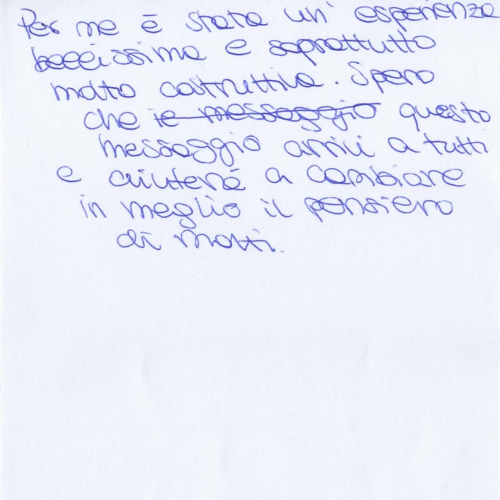 Per me è stata un' esperienza
bellissima e soprattutto
molto costruttiva. Spero
che il messaggio questo
messaggio arrivi a tutti
e aiuterà a cambiare
in meglio il pensiero
di molti.